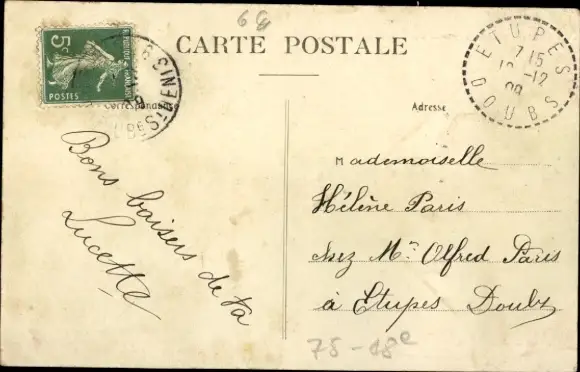 6
CARTE POSTALE
5c
REPUBLIQUE FRANÇAISE
POSTES
ETUPES
7 15
12
DOUBS
Correspondance
Adresse
Bons baisers de ta
Lucette
Mademoiselle
Hélène Paris
chez Mr Alfred Paris
à Etupes Doubs
75-18e